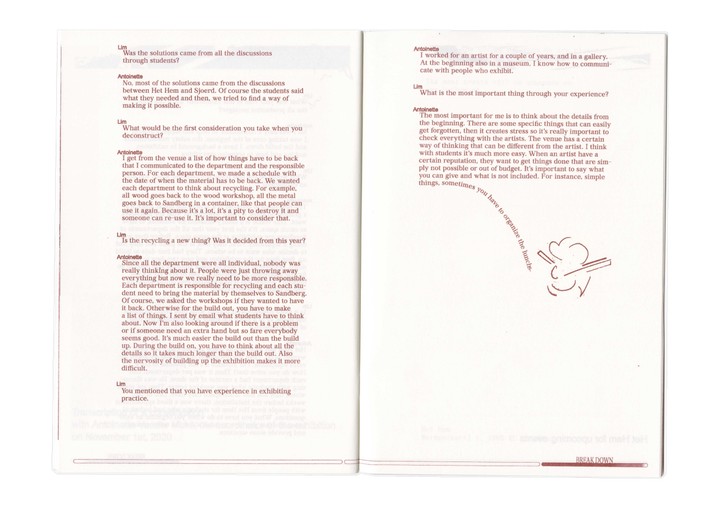 Lim
Was the solutions came from all the discussions
through students?
Antoinette
No, most of the solutions came from the discussions
between Het Hem and Sjoerd. Of course the students said
what they needed and then, we tried to find a way of
making it possible.
Lim
What would be the first consideration you take when you
deconstruct?
Antoinette
I get from the venue a list of how things have to be back
that I communicated to the department and the responsible
person. For each department, we made a schedule with
the date of when the material has to be back. We wanted
each department to think about recycling. For example,
all wood goes back to the wood workshop, all the metal
goes back to Sandberg in a container, like that people can
use it again. Because it's a lot, it's a pity to destroy it and
someone can re-use it. It's important to consider that.
Lim
Is the recycling a new thing? Was it decided from this year?
Antoinette
Since all the department were all individual, nobody was
really thinking about it. People were just throwing sway
everything but now we really need to be more responsible.
Each department is responsible for recycling and each stu-
dent need to bring the material by themselves to Sandberg.
Of course, we asked the workshops if they wanted to have
it back. Otherwise for the build out, you have to make
a list of things. I sent by email what students have to think
about. Now I'm also looking around if there is a problem
or if someone need an extra hand but so fare everybody
seems good. It's much easier the build out than the build
up. During the build on, you have to think about all the
details so it takes much longer than the build out. Also
the nervosity of building up the exhibition makes it more
difficult.
Lim
You mentioned that you have experience in exhibiting
practice.
Antoinette
I worked for an artist for a couple of years, and in a gallery.
At the beginning also in a museum. I know how to communi-
cate with people who exhibit.
Lim
What is the most important thing through your experience?
Antoinette
The most important for me is to think about the details from
the beginning. There are some specific things that can easily
get forgotten, then it creates stress so it's really important to
check everything with the artists. The venue has a certain
way of thinking that can be different from the artist. I think
with students it's much more easy. When an artist have a
certain reputation, they want to get things done that are sim-
ply not possible or out of budget. It's important to say what
you can give and what is not included. For instance, simple
things, sometimes you have to organize the lunchs.
BREAK DOWN